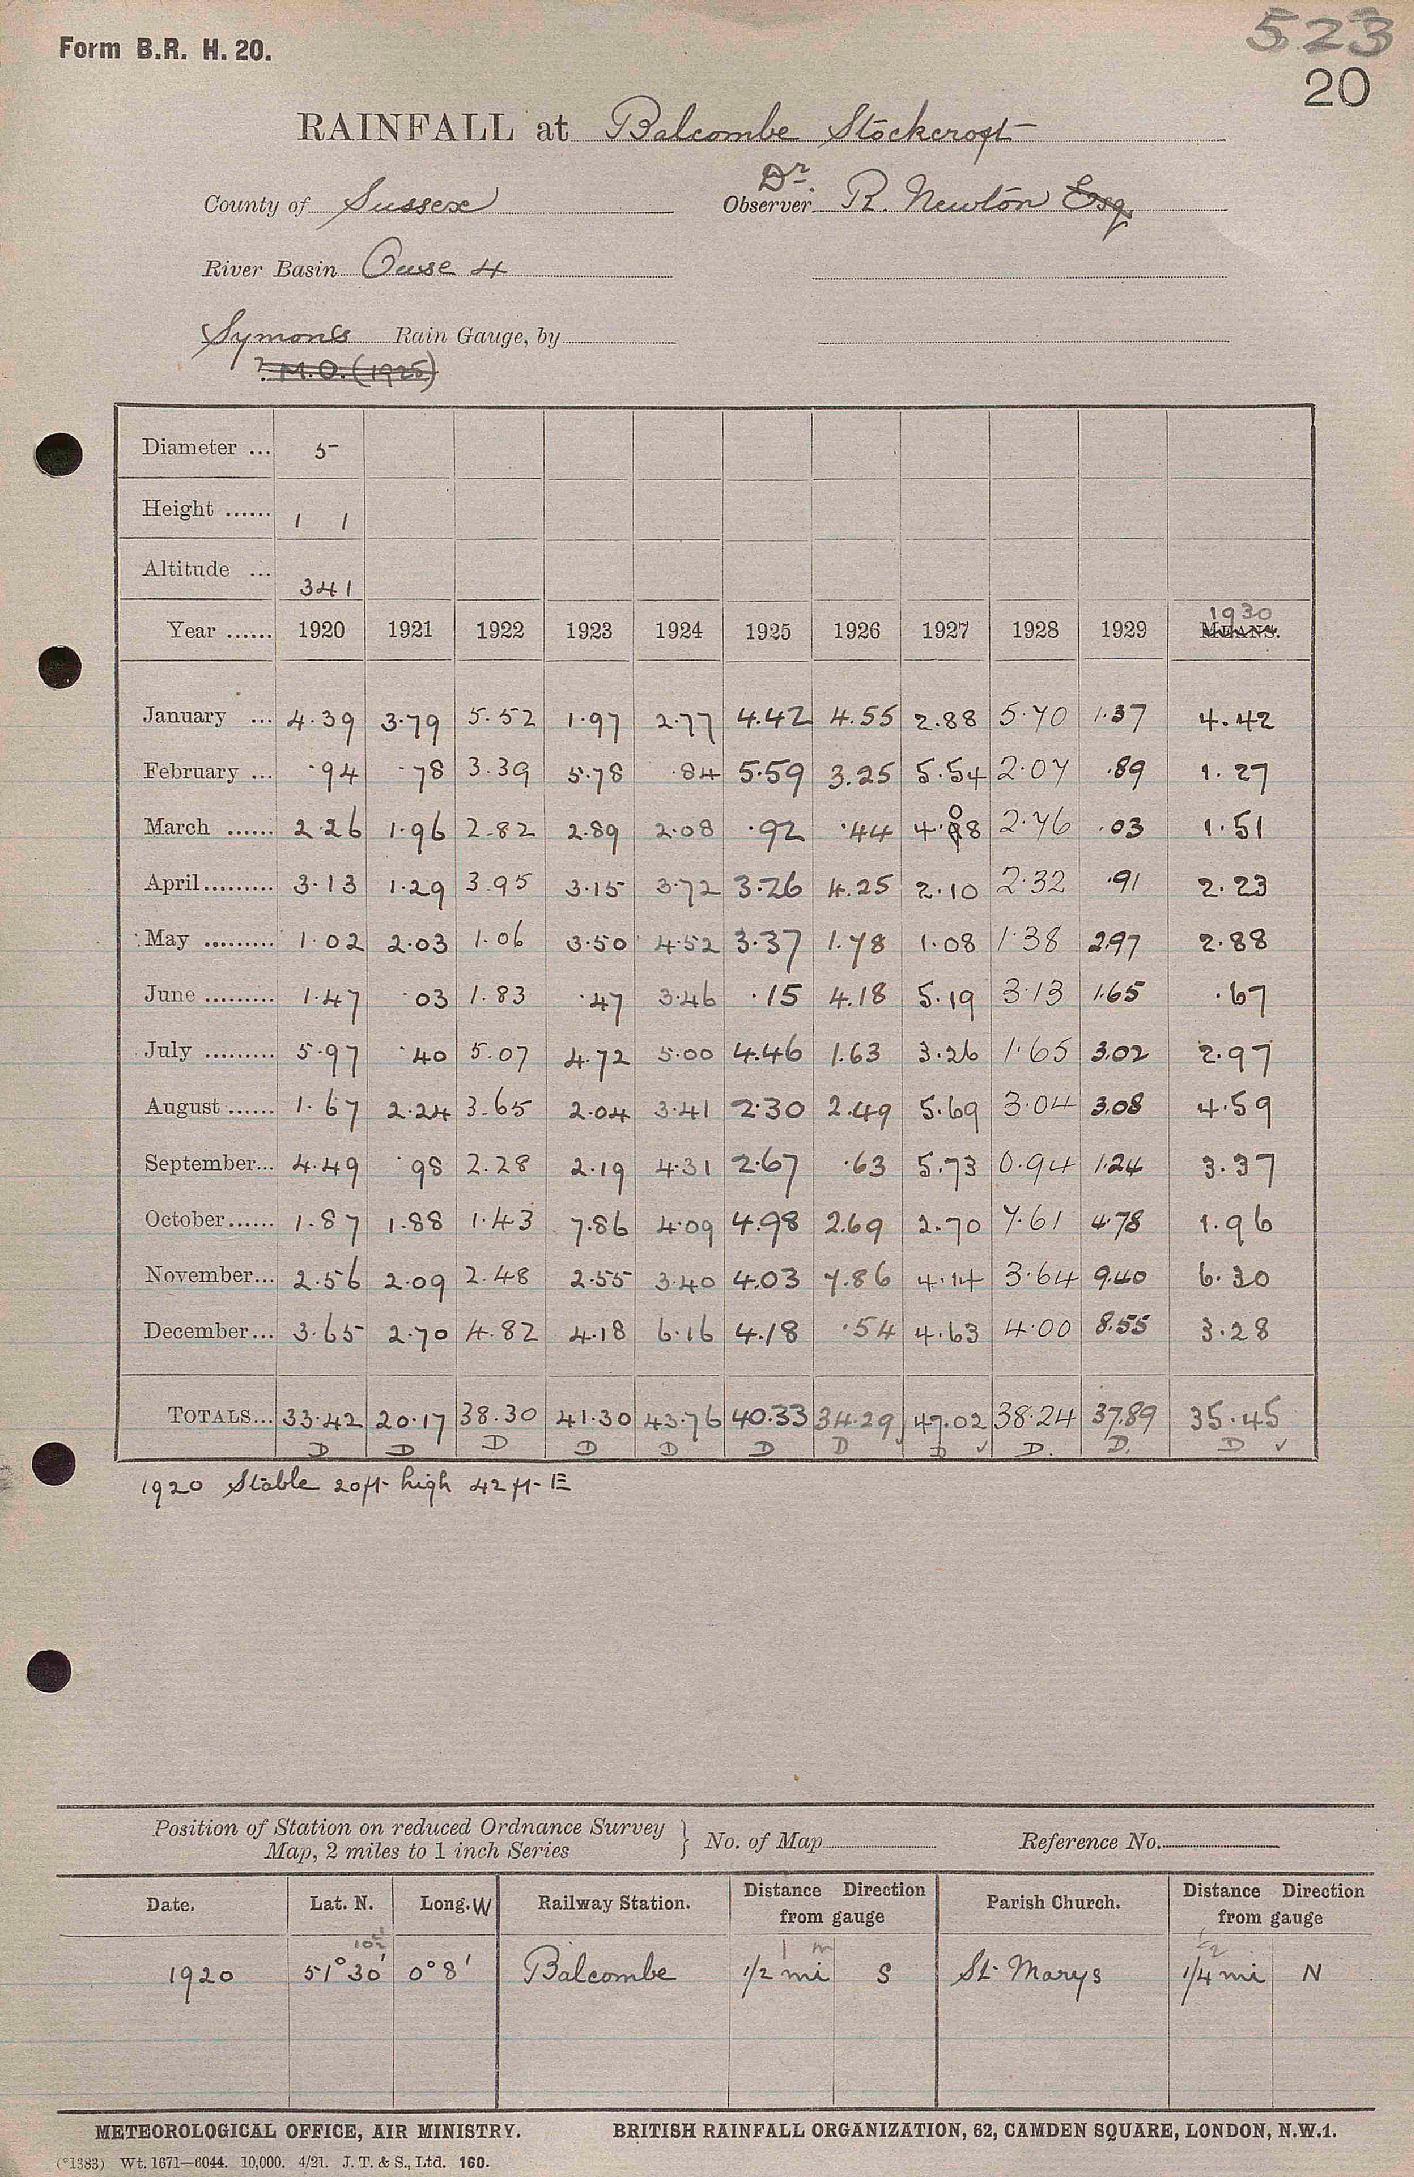 523
Form B.R. H. 20.
20
RAINFALL at Balcombe Stockcroft
Dr.
County of Sussex Observer R. Newton Esq
River Basin Ouse 4
Symons Rain Gauge, by
? M.O. (1925)
Diameter ... 5
Height ...... 1 1
Altitude ... 341
1930
Year ...... 1920 1921 1922 1923 1924 1925 1926 1927 1928 1929 MEANS.
January ... 4.39 3.79 5.52 1.97 2.77 4.42 4.55 2.88 5.70 1.37 4.42
February ... .94 .78 3.39 5.78 .84 5.59 3.25 5.54 2.07 .89 1.27
March ...... 2.26 1.96 2.82 2.89 2.08 .92 .44 4.08 2.76 .03 1.51
April......... 3.13 1.29 3.95 3.15 3.72 3.26 4.25 2.10 2.32 .91 2.23
May ......... 1.02 2.03 1.06 3.50 4.52 3.37 1.78 1.08 1.38 2.97 2.88
June ......... 1.47 .03 1.83 .47 3.46 .15 4.18 5.19 3.13 1.65 .67
July ......... 5.97 .40 5.07 4.72 5.00 4.46 1.63 3.26 1.65 3.02 2.97
August ...... 1.67 2.24 3.65 2.04 3.41 2.30 2.49 5.69 3.04 3.08 4.59
September... 4.49 .98 2.28 2.19 4.31 2.67 .63 5.73 0.94 1.24 3.37
October...... 1.87 1.88 1.43 7.86 4.09 4.98 2.69 2.70 7.61 4.78 1.96
November... 2.56 2.09 2.48 2.55 3.40 4.03 7.86 4.14 3.64 9.40 6.30
December... 3.65 2.70 4.82 4.18 6.16 4.18 .54 4.63 4.00 8.55 3.28
TOTALS... 33.42 20.17 38.30 41.30 43.76 40.33 34.29 47.02 38.24 37.89 35.45
D D D D D D D D ✓ D. D. D ✓
1920 Stable 20ft high 42 ft E
Position of Station on reduced Ordnance Survey
Map, 2 miles to 1 inch Series } No. of Map Reference No.
Date. Lat. N. Long. W Railway Station. Distance Direction from gauge Parish Church. Distance Direction from gauge
1 m
1920 51°30' 0°8' Balcombe 1/2 mi S St Marys 1/4 mi N
METEOROLOGICAL OFFICE, AIR MINISTRY. BRITISH RAINFALL ORGANIZATION, 62, CAMDEN SQUARE, LONDON, N.W.1.
(*1383) Wt. 1671—6044. 10,000. 4/21. J. T. & S., Ltd. 160.